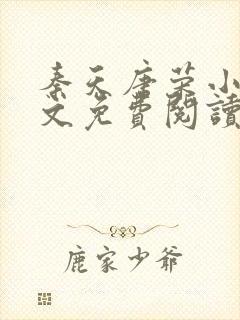 秦天唐荣小
文免費閱讀
鹿家少爺